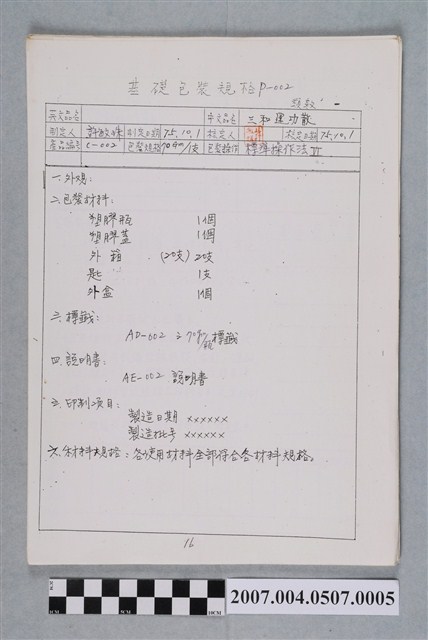 基礎包裝規格 P-002
頁數: -
英文品名
中文品名 三和運功散
制定人 許敏 制定日期 75.10.1 核定人 核定日期 75.10.1
產品編號 C-002 包裝規格 70gm/支 包裝指削 標準操作法 VI
一.外观:
二.包裝材料:
塑膠瓶 1個
塑膠蓋 1個
外箱 (20支) 20支
匙 1支
外盒 1個
三.標籤:
AD-002 之 70gm/瓶 標籤
四.說明書:
AE-002 說明書
五.印制項目:
製造日期 ××××××
製造批号 ××××××
六.餘材料規格:各使用材料全部符合各材料規格。
16
CM
5CM
10CM
2007.004.0507.0005